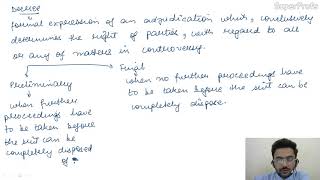 SuperProfs
Decree
formal expression of an adjudication which, conclusively
determines the right of parties, with regard to all
or any of matters in controversy.
Preliminary
when further
proceedings have
to be taken before
the suit can be
completely disposed
of
Final
when no further proceedings have
to be taken before the suit can be
completely dispose.